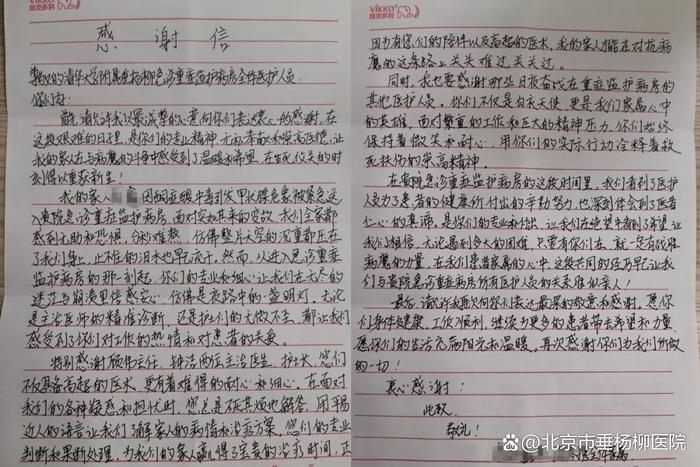 ViKKO
维克多利
感谢信
尊敬的清华大学附属垂杨柳急诊重症监护病房全体医护人员:
你们好:
首先请允许我以最诚挚的心意向你们表达衷心的感谢,在
这段艰难的日子里,是你们的专业精神、无私奉献和崇高医德,让
我的家人在与病魔的斗争中感受到了温暖和希望,在生死攸关的时
刻得以重获新生!
我的家人 因甲状腺危象被紧急送
入贵院急诊重症监护病房,面对突如其来的变故,我们全家都
感到无助和恐惧,分秒难熬,仿佛整片天空的沉重都压在
了我们身上,止不住的泪水也早已流干。然而,从进入急诊重症
监护病房的那一刻起,你们的专业和细心让我们在无尽的
迷茫与期盼里倍感安心,仿佛是夜路中的一盏明灯。无论
是主治医师的精准诊断,还是护士们的无微不至,都让我们
感受到了你们对工作的热情和对患者的关爱。
特别感谢顾伟主任、钟洁两位主治医生、护士长,您们
不仅具备高超的医术,更有着难得的耐心和细心。在面对
我们的各种疑惑和担忧时,您总是不厌其烦地解答,用平易
近人的语言让我们了解家人的病情和治疗方案。您们的专业
判断和果断处理,为我们的家人赢得了宝贵的治疗时间,正
ViKKO
维克多利
因为有您们的陪伴以及高超的医术,我的家人才能在对抗病
魔的这条路上关关难过关关过。
同时,我也要感谢那些日夜奋战在重症监护病房的
其他医护人员。你们不仅是白衣天使,更是我们家属心中
的英雄,面对繁重的工作和巨大的精神压力,你们始终
保持着微笑和耐心,用你们的实际行动诠释着救
死扶伤的崇高精神。
在贵院急诊重症监护病房的这段时间里,我们看到了医护
人员为了患者的健康所付出的辛勤努力,也深刻体会到了医者
仁心的真谛,是你们的专业和付出,让我们在绝望中看到了希望,让
我们相信,无论遇到多大的困难,只要有你们在,就一定有战胜
病魔的力量,在我们患者家属的心中,这段共同的经历早已让我
们与贵院急诊重症监护病房所有医护人员的关系难似亲人!
最后,请允许我再次向你们表达最深的敬意和感谢,愿你
们身体健康、工作顺利,继续为更多的患者带去希望和力量,
愿你们的生活充满阳光和温暖。再次感谢你们为我们所做
的一切!
衷心感谢!
此致
敬礼!
@北京市垂杨柳医院